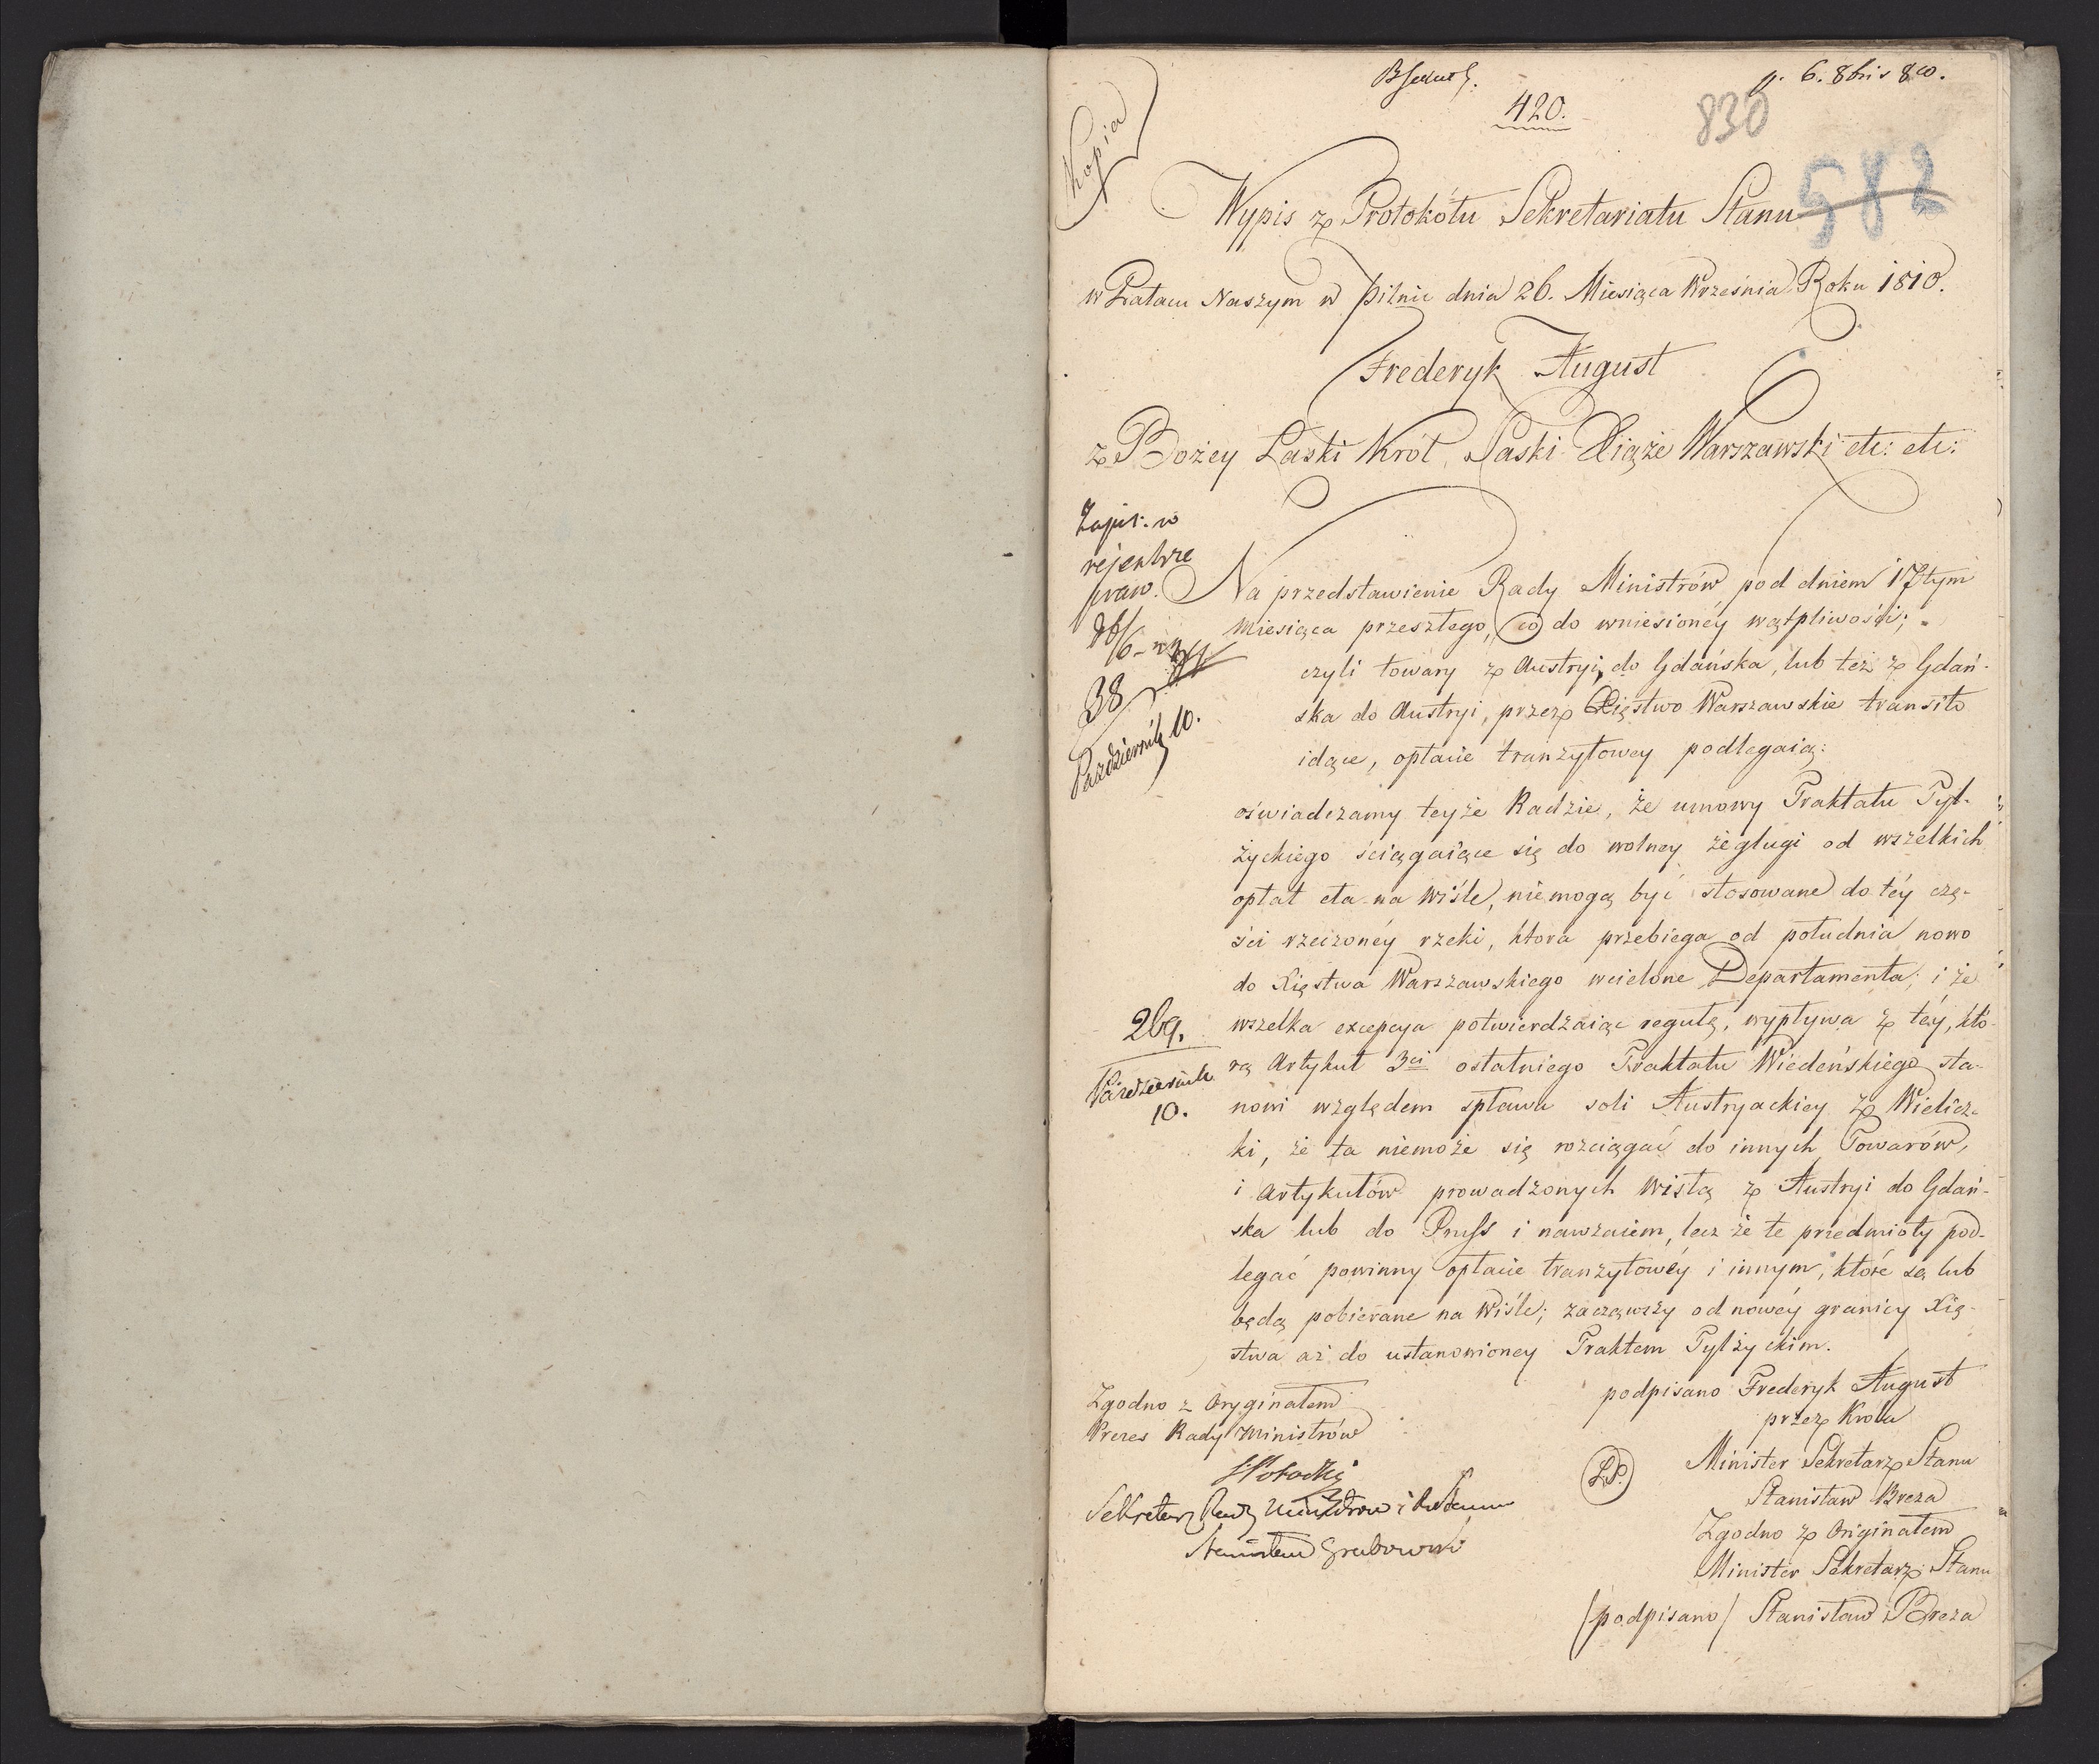 p. 6. 8bris 810.
420.
830
582
Kopia
Wypis z Protokółu Sekretariatu Stanu
w Pałacu Naszym w Pilnic dnia 26. Miesiąca Września Roku 1810.
Frederyk August
z Bożey Łaski Król Saski Xiąże Warszawski etc: etc:
Zapis: w
rejestrze
praw.
38
Pazdziernik 10.
Na przedstawienie Rady Ministrów pod dniem 17tym
Miesiąca przeszłego, co do wniesionéy wątpliwości;
czyli towary z Austryi, do Gdańska, lub też z Gdań-
ska do Austryi, przez Xięstwo Warszawskie transito
idące, opłacie tranzytowey podlegaią:
oświadczamy teyże Radzie, że umowy Traktatu Tyl-
życkiego ściągaiące się do wolney żeglugi od wszelkich
opłat cła na Wiśle, niemogą być stosowane do téy czę-
ści rzeczonéy rzeki, ktora przebiega od południa nowo
do Xięstwa Warszawskiego wcielone Departamenta; i że
269.
Pazdziernik
10.
wszelka excepcya potwierdzaiąc regułę, wypływa z téy, któ-
rą Artykuł 3ci ostatniego Traktatu Wiedeńskiego sta-
nowi względem spławu soli Austryackiey z Wielicz-
ki, że ta niemoże się rozciągać do innych Towarów,
i Artykułów prowadzonych Wisłą z Austryi do Gdań-
ska lub do Pruss i nawzaiem, lecz że te przedmioty pod-
legać powinny opłacie tranzytowéy i innym, które są lub
będą pobierane na Wiśle; zacząwszy od nowéy granicy Xię-
stwa aż do ustanowioney Traktem Tylżyckim.
Zgodno z Oryginałem
Prezes Rady Ministrów
Sekretarz Rady Ministrow i
Stanisław Grabowski
podpisano Frederyk August
przez Krola
(L.S.)
Minister Sekretarz Stanu
Stanisław Breza
Zgodno z Originałem
Minister Sekretarz Stanu
/podpisano/ Stanisław Breza